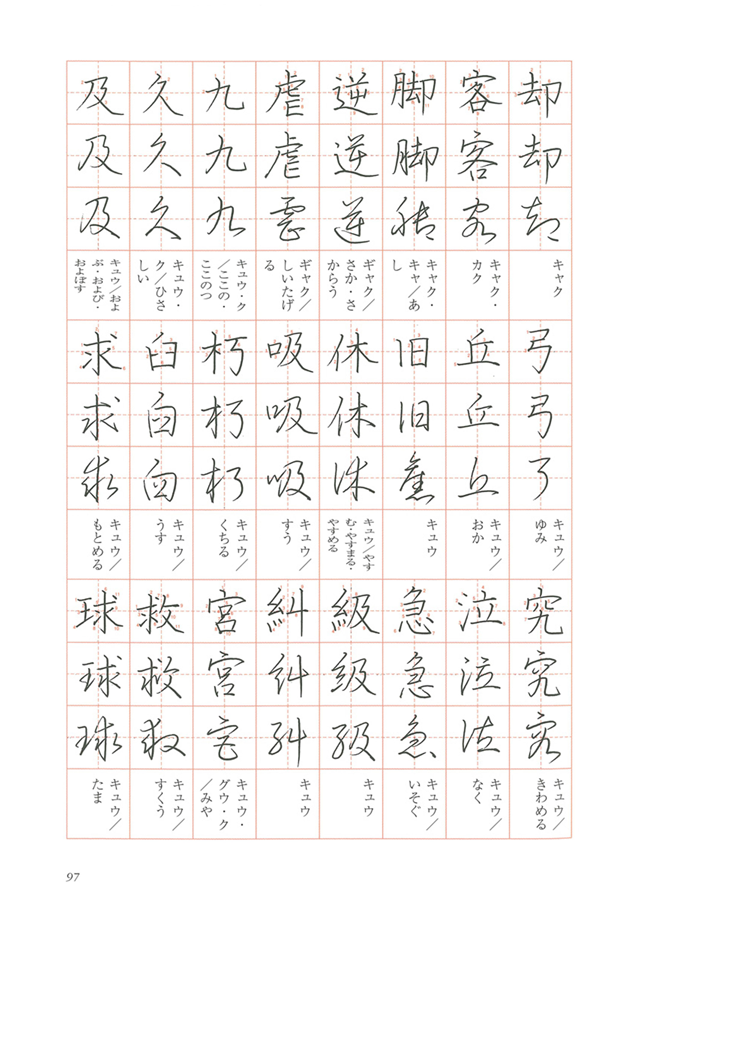 却却却
キャク
客客客
キャク・
カク
脚脚脚
キャク・
キャ/あ
し
逆逆逆
ギャク/
さか・さ
からう
虐虐虐
ギャク/
しいたげ
る
九九九
キュウ・ク
/ここの・
ここのつ
久久久
キュウ・
ク/ひさ
しい
及及及
キュウ/およ
ぶ・および・
およぼす
弓弓弓
キュウ/
ゆみ
丘丘丘
キュウ/
おか
旧旧舊
キュウ
休休休
キュウ/やす
む・やすまる・
やすめる
吸吸吸
キュウ/
すう
朽朽朽
キュウ/
くちる
臼臼臼
キュウ/
うす
求求求
キュウ/
もとめる
究究究
キュウ/
きわめる
泣泣泣
キュウ/
なく
急急急
キュウ/
いそぐ
級級級
キュウ
糾糾糾
キュウ
宮宮宮
キュウ・
グウ・ク
/みや
救救救
キュウ/
すくう
球球球
キュウ/
たま
97